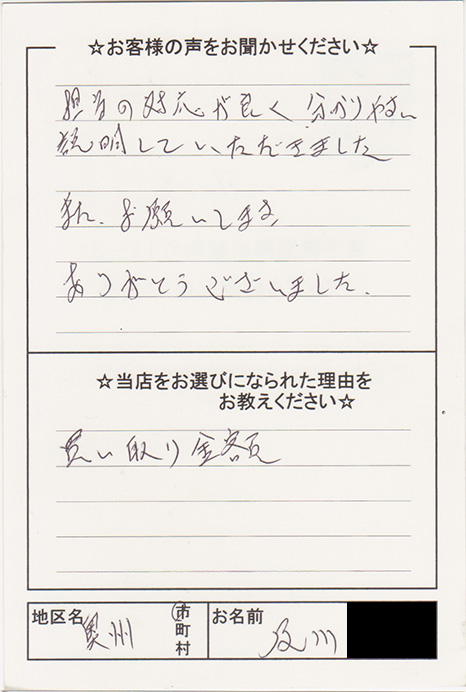 ☆お客様の声をお聞かせください☆
担当の対応が良く 分かりやすい
説明していただきました
また、お願いします
ありがとうございました.
☆当店をお選びになられた理由を
お教えください☆
買い取り金額
地区名 奥州 市
町
村
お名前 及川